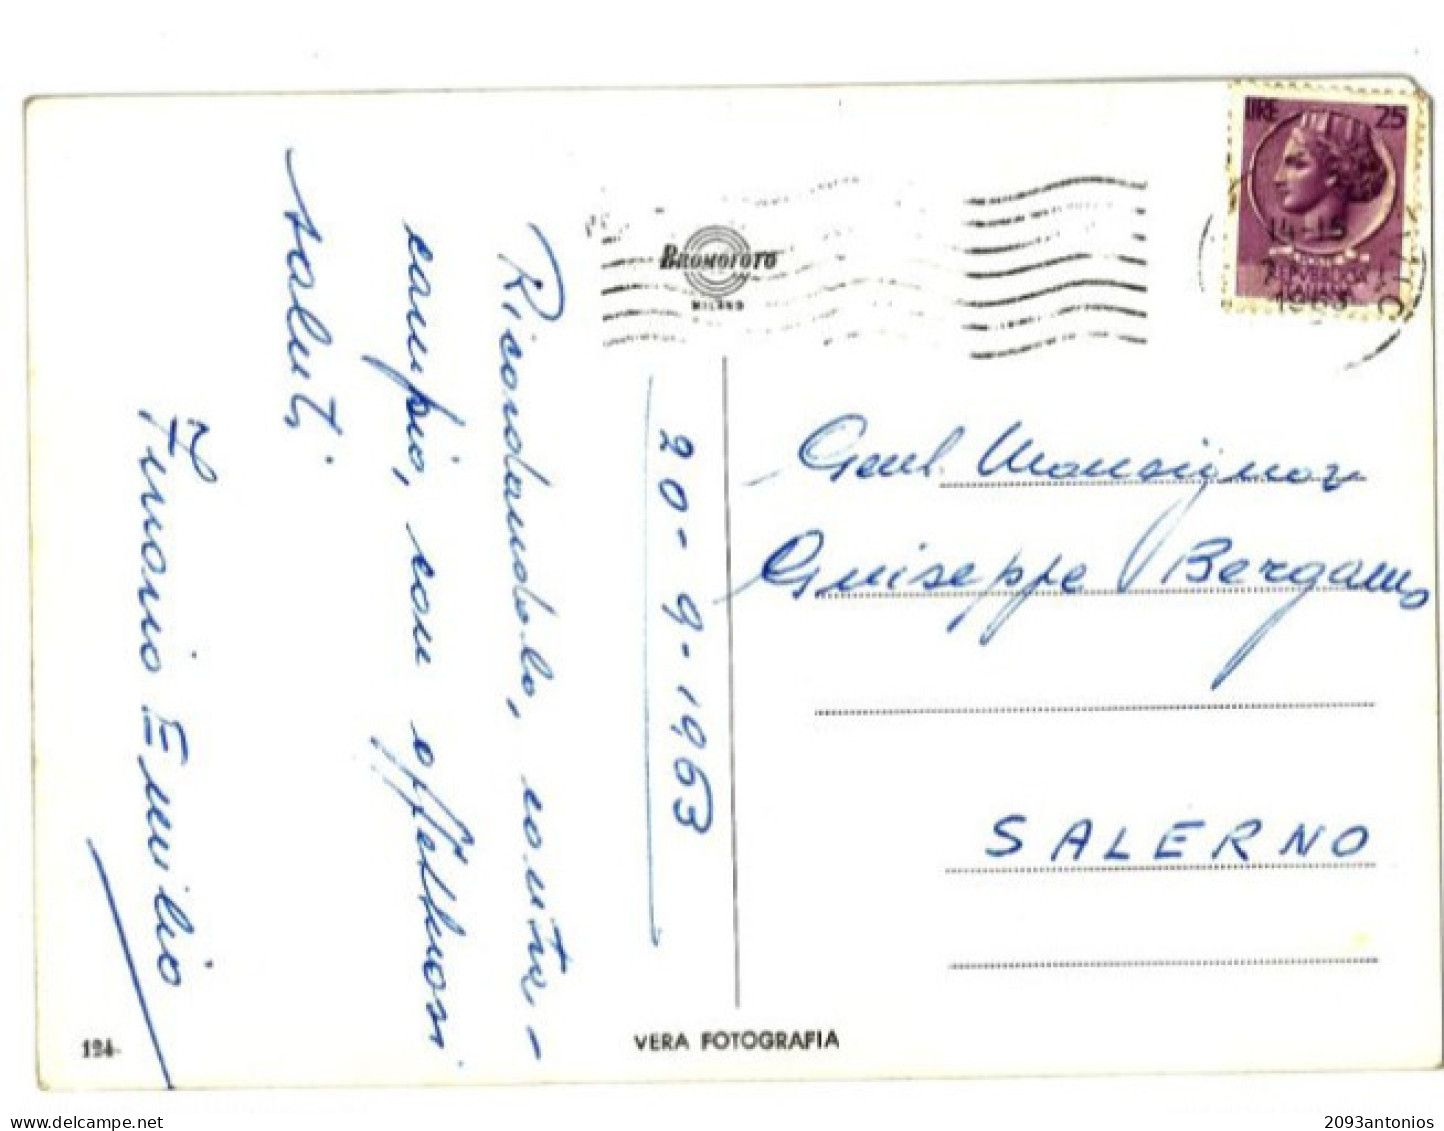 20-9-1963
Ricordandolo, contra-
cambio, con affettuosi
saluti
Emilio
BROMOFOTO
MILANO
LIRE 25
14-15
1963
Gent. Monsignor
Giuseppe Bergamo
SALERNO
124
VERA FOTOGRAFIA
www.delcampe.net
2093antonios